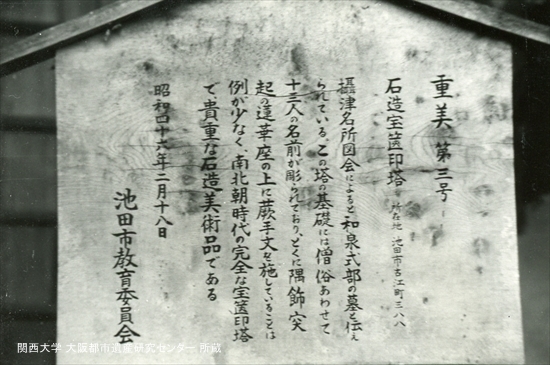 重美第三号
石造宝篋印塔 所在地 池田市古江町三八八
摂津名所図会によると和泉式部の墓と伝え
られている。この塔の基礎には僧俗あわせて
十三人の名前が彫られており、とくに隅飾突
起の蓮華座の上に蕨手文を施していることは
例が少なく、南北朝時代の完全な宝篋印塔
で貴重な石造美術品である
昭和四十六年二月十八日
池田市教育委員会
関西大学 大阪都市遺産研究センター 所蔵